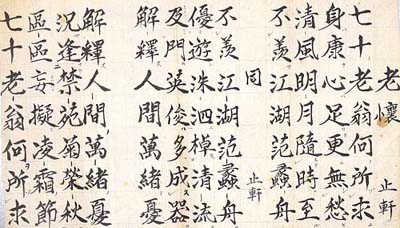 老懷 止軒
七十老翁何所求
身康心足更無愁
清風明月隨時至
不羨江湖范蠡舟
同 止軒
不羨江湖范蠡舟
優遊洙泗棹清流
及門英俊多成器
解釋人間萬緒憂
解釋人間萬緒憂
況逢禁苑菊榮秋
區區妄擬凌霜節
七十老翁何所求